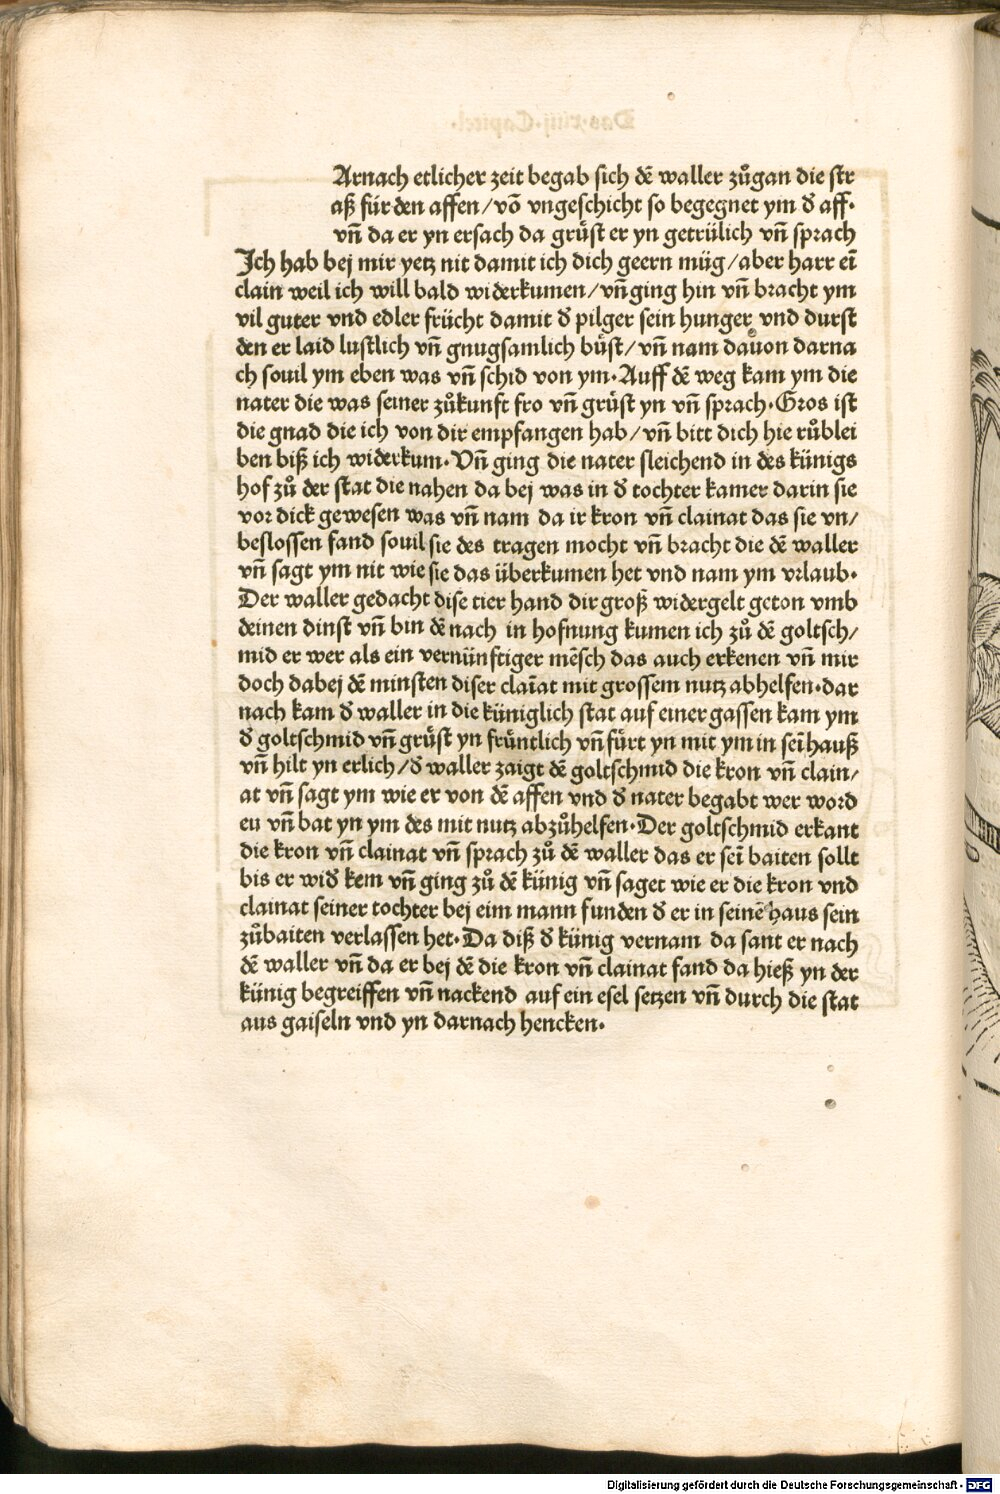 Arnach etlicher zeit begab sich dē waller zůgan die str
aß für den affen/vō vngeschicht so begegnet ym đ aff·
vn̄ da er yn ersach da grůst er yn getrülich vn̄ sprach
Ich hab bej mir yetz nit damit ich dich geern müg/aber harr eī
clain weil ich will bald widerkumen/vn̄ ging hin vn̄ bracht ym
vil guter vnd edler frücht damit đ pilger sein hunger vnd durst
den er laid lustlich vn̄ gnugsamlich bůst/vn̄ nam dauon darna
ch souil ym eben was vn̄ schid von ym·Auff dē weg kam ym die
nater die was seiner zůkunft fro vn̄ grůst yn vn̄ sprach·Gros ist
die gnad die ich von dir empfangen hab/vn̄ bitt dich hie růblei
ben biß ich widerkum·Vn̄ ging die nater sleichend in des künigs
hof zů der stat die nahen da bej was in đ tochter kamer darin sie
vor dick gewesen was vn̄ nam da ir kron vn̄ clainat das sie vn/
beslossen fand souil sie des tragen mocht vn̄ bracht die dē waller
vn̄ sagt ym nit wie sie das überkumen het vnd nam ym vrlaub·
Der waller gedacht dise tier hand dir groß widergelt geton vmb
deinen dinst vn̄ bin dē nach in hofnung kumen ich zů dē goltsch/
mid er wer als ein vernünftiger mēsch das auch erkenen vn̄ mir
doch dabej dē minsten diser claīat mit grossem nutz abhelfen·dar
nach kam đ waller in die küniglich stat auf einer gassen kam ym
đ goltschmid vn̄ grůst yn früntlich vn̄ fürt yn mit ym in seī hauß
vn̄ hilt yn erlich/đ waller zaigt dē goltschmid die kron vn̄ clain/
at vn̄ sagt ym wie er von dē affen vnd đ nater begabt wer word
en vn̄ bat yn ym des mit nutz abzůhelfen·Der goltschmid erkant
die kron vn̄ clainat vn̄ sprach zů dē waller das er seī baiten sollt
bis er wiđ kem vn̄ ging zů dē künig vn̄ saget wie er die kron vnd
clainat seiner tochter bej eim mann funden đ er in seinē haus sein
zůbaiten verlassen het·Da diß đ künig vernam da sant er nach
dē waller vn̄ da er bej dē die kron vn̄ clainat fand da hieß yn der
künig begreiffen vn̄ nackend auf ein esel setzen vn̄ durch die stat
aus gaiseln vnd yn darnach hencken·
Digitalisierung gefördert durch die Deutsche Forschungsgemeinschaft - DFG